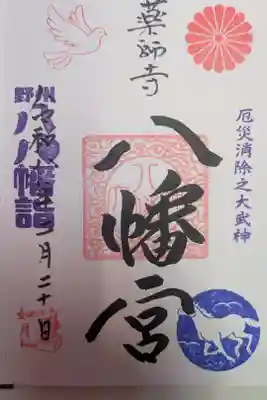 厄災消除之大武神
薬師寺
八幡宮
野州
八八幡詣
令和
月二十日